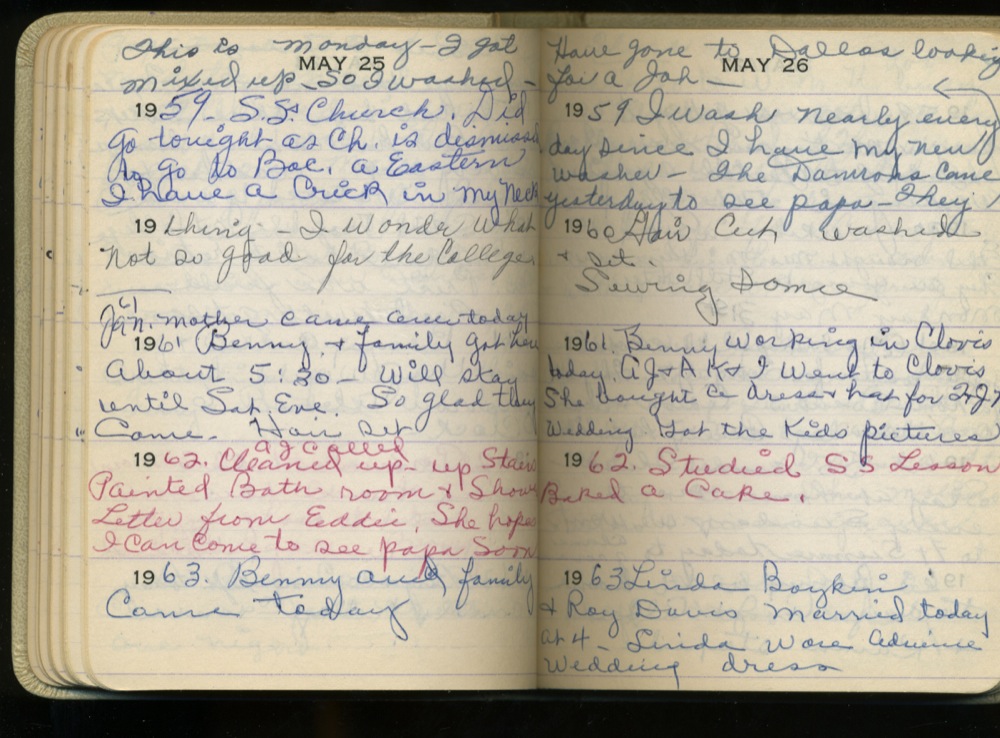 This is Monday - I got
MAY 25
mixed up - So I washed -
1959. S.S. Church. Did
go tonight as Ch. is dismissed
to go to Bac. a Eastern
I have a Crick in my Neck
19 thing - I wonder what
not so good for the College
61
Jan. mother came over today
1961 Benny & family got here
About 5:30 - Will stay
until Sat. Eve. So glad they
Came. Hair set
AJ called
1962. Cleaned up - up Stairs
Painted Bath room & Show
Letter from Eddie. She hopes
I can come to see papa soon
1963. Benny and family
Came today
Have gone to Dallas looking
MAY 26
for a Job -
1959 I wash nearly every
day since I have my new
washer - The Damrons came
yesterday to see papa - They
1960 Hair Cut washed
& set.
Sewing Some
1961. Benny working in Clovis
today. AJ & AK & I went to Clovis
She bought a dress & hat for
Wedding. Got the Kids pictures
1962. Studied SS Lesson
Baked a Cake.
1963 Linda Boykin
& Roy Davis married today
at 4 - Linda wore
Wedding dress